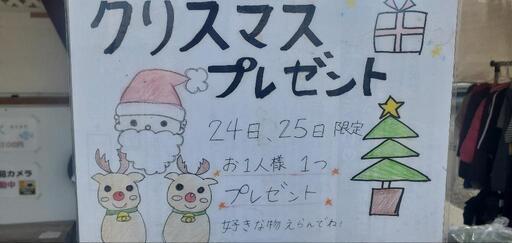 クリスマス
プレゼント
24日、25日 限定
お1人様 1つ
プレゼント
好きな物えらんでね!
カメラ